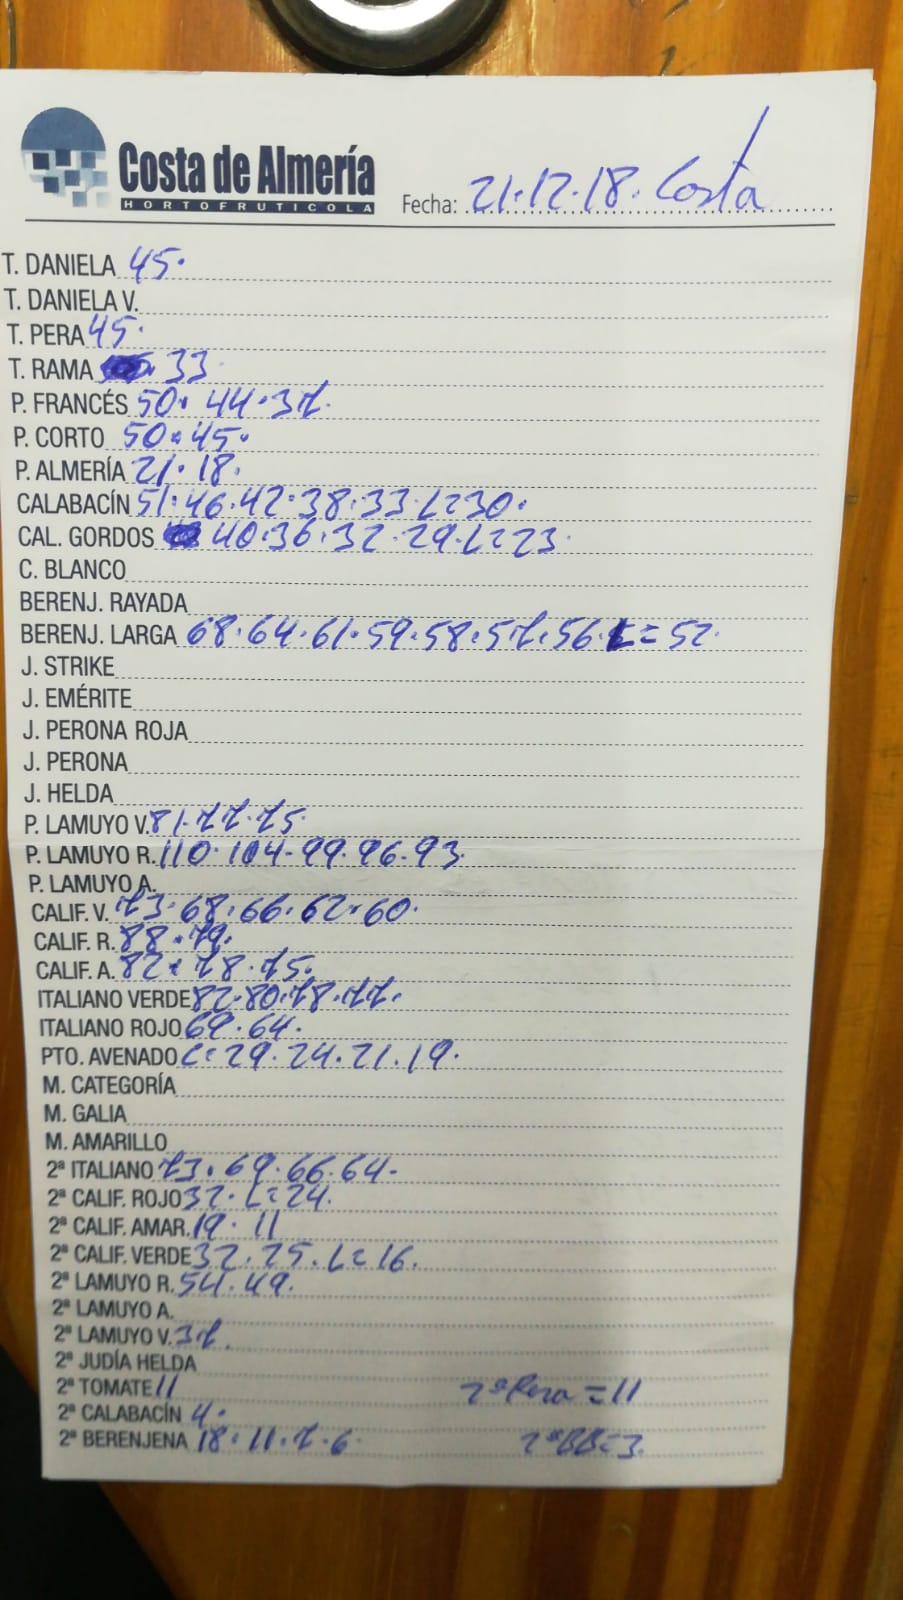 Costa de Almería
HORTOFRUTICOLA
Fecha: 21.12.18. Costa
T. DANIELA 45.
T. DANIELA V.
T. PERA 45.
T. RAMA 33
P. FRANCÉS 50. 44.37.
P. CORTO 50.45.
P. ALMERÍA 21.18.
CALABACÍN 51.46.42.38.33.L=30.
CAL. GORDOS 40.36.32.29.L=23
C. BLANCO
BERENJ. RAYADA
BERENJ. LARGA 68.64.61.59.58.57.56.L=52.
J. STRIKE
J. EMÉRITE
J. PERONA ROJA
J. PERONA
J. HELDA
P. LAMUYO V. 81.77.75
P. LAMUYO R. 110.104.99.96.93.
P. LAMUYO A.
CALIF. V. 73.68.66.62.60.
CALIF. R. 88.79.
CALIF. A. 82.78.75.
ITALIANO VERDE 82.80.78.77.
ITALIANO ROJO 69.64.
PTO. AVENADO C=29.24.21.19.
M. CATEGORÍA
M. GALIA
M. AMARILLO
2ª ITALIANO 73.69.66.64.
2ª CALIF. ROJO 32.L=24.
2ª CALIF. AMAR. 19.11
2ª CALIF. VERDE 32.25.L=16.
2ª LAMUYO R. 54.49.
2ª LAMUYO A.
2ª LAMUYO V. 37.
2ª JUDÍA HELDA
2ª TOMATE 11 2ª Pera = 11
2ª CALABACÍN 4.
2ª BERENJENA 18.11.7.6 2ªBB=3.